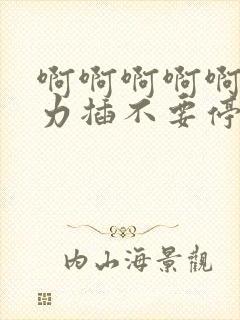 啊啊啊啊啊
力插不要停
内山海景觀